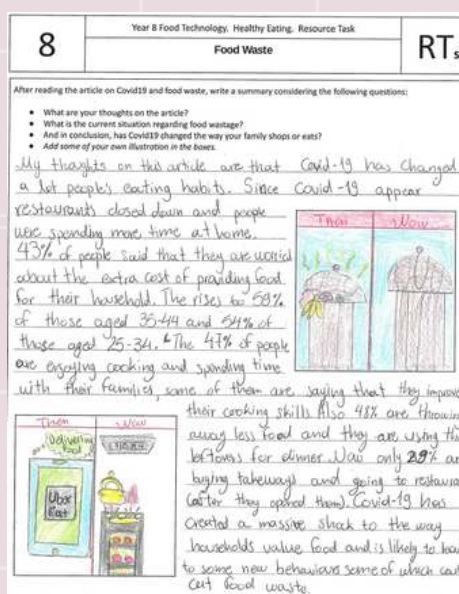 8
Year 8 Food Technology. Healthy Eating. Resource Task
Food Waste
RTs
After reading the article on Covid19 and food waste, write a summary considering the following questions:
What are your thoughts on the article?
What is the current situation regarding food wastage?
And in conclusion, has Covid19 changed the way your family shops or eats?
Add some of your own illustration in the boxes.
My thoughts on this article are that Covid-19 has changed
a lot people's eating habits. Since Covid-19 appear
restaurants closed down and people
were spending more time at home.
43% of people said that they are worried
about the extra cost of providing food
for their household. The rises to 59%
of those aged 35-44 and 54% of
those aged 25-34. The 47% of people
are enjoying cooking and spending time
with their families, some of them are saying that they improve
their cooking skills. Also 48% are throwin
away less food and they are using th
leftovers for dinner. Now only 29% ar
buying takeways and going to restaura
(after they opened them). Covid-19 has
created a massive shock to the way
households value food and is likely to
to some new behaviours some of which
cut food waste.
Then
Now
Then
Now
Delivering
food
Uber
Eat